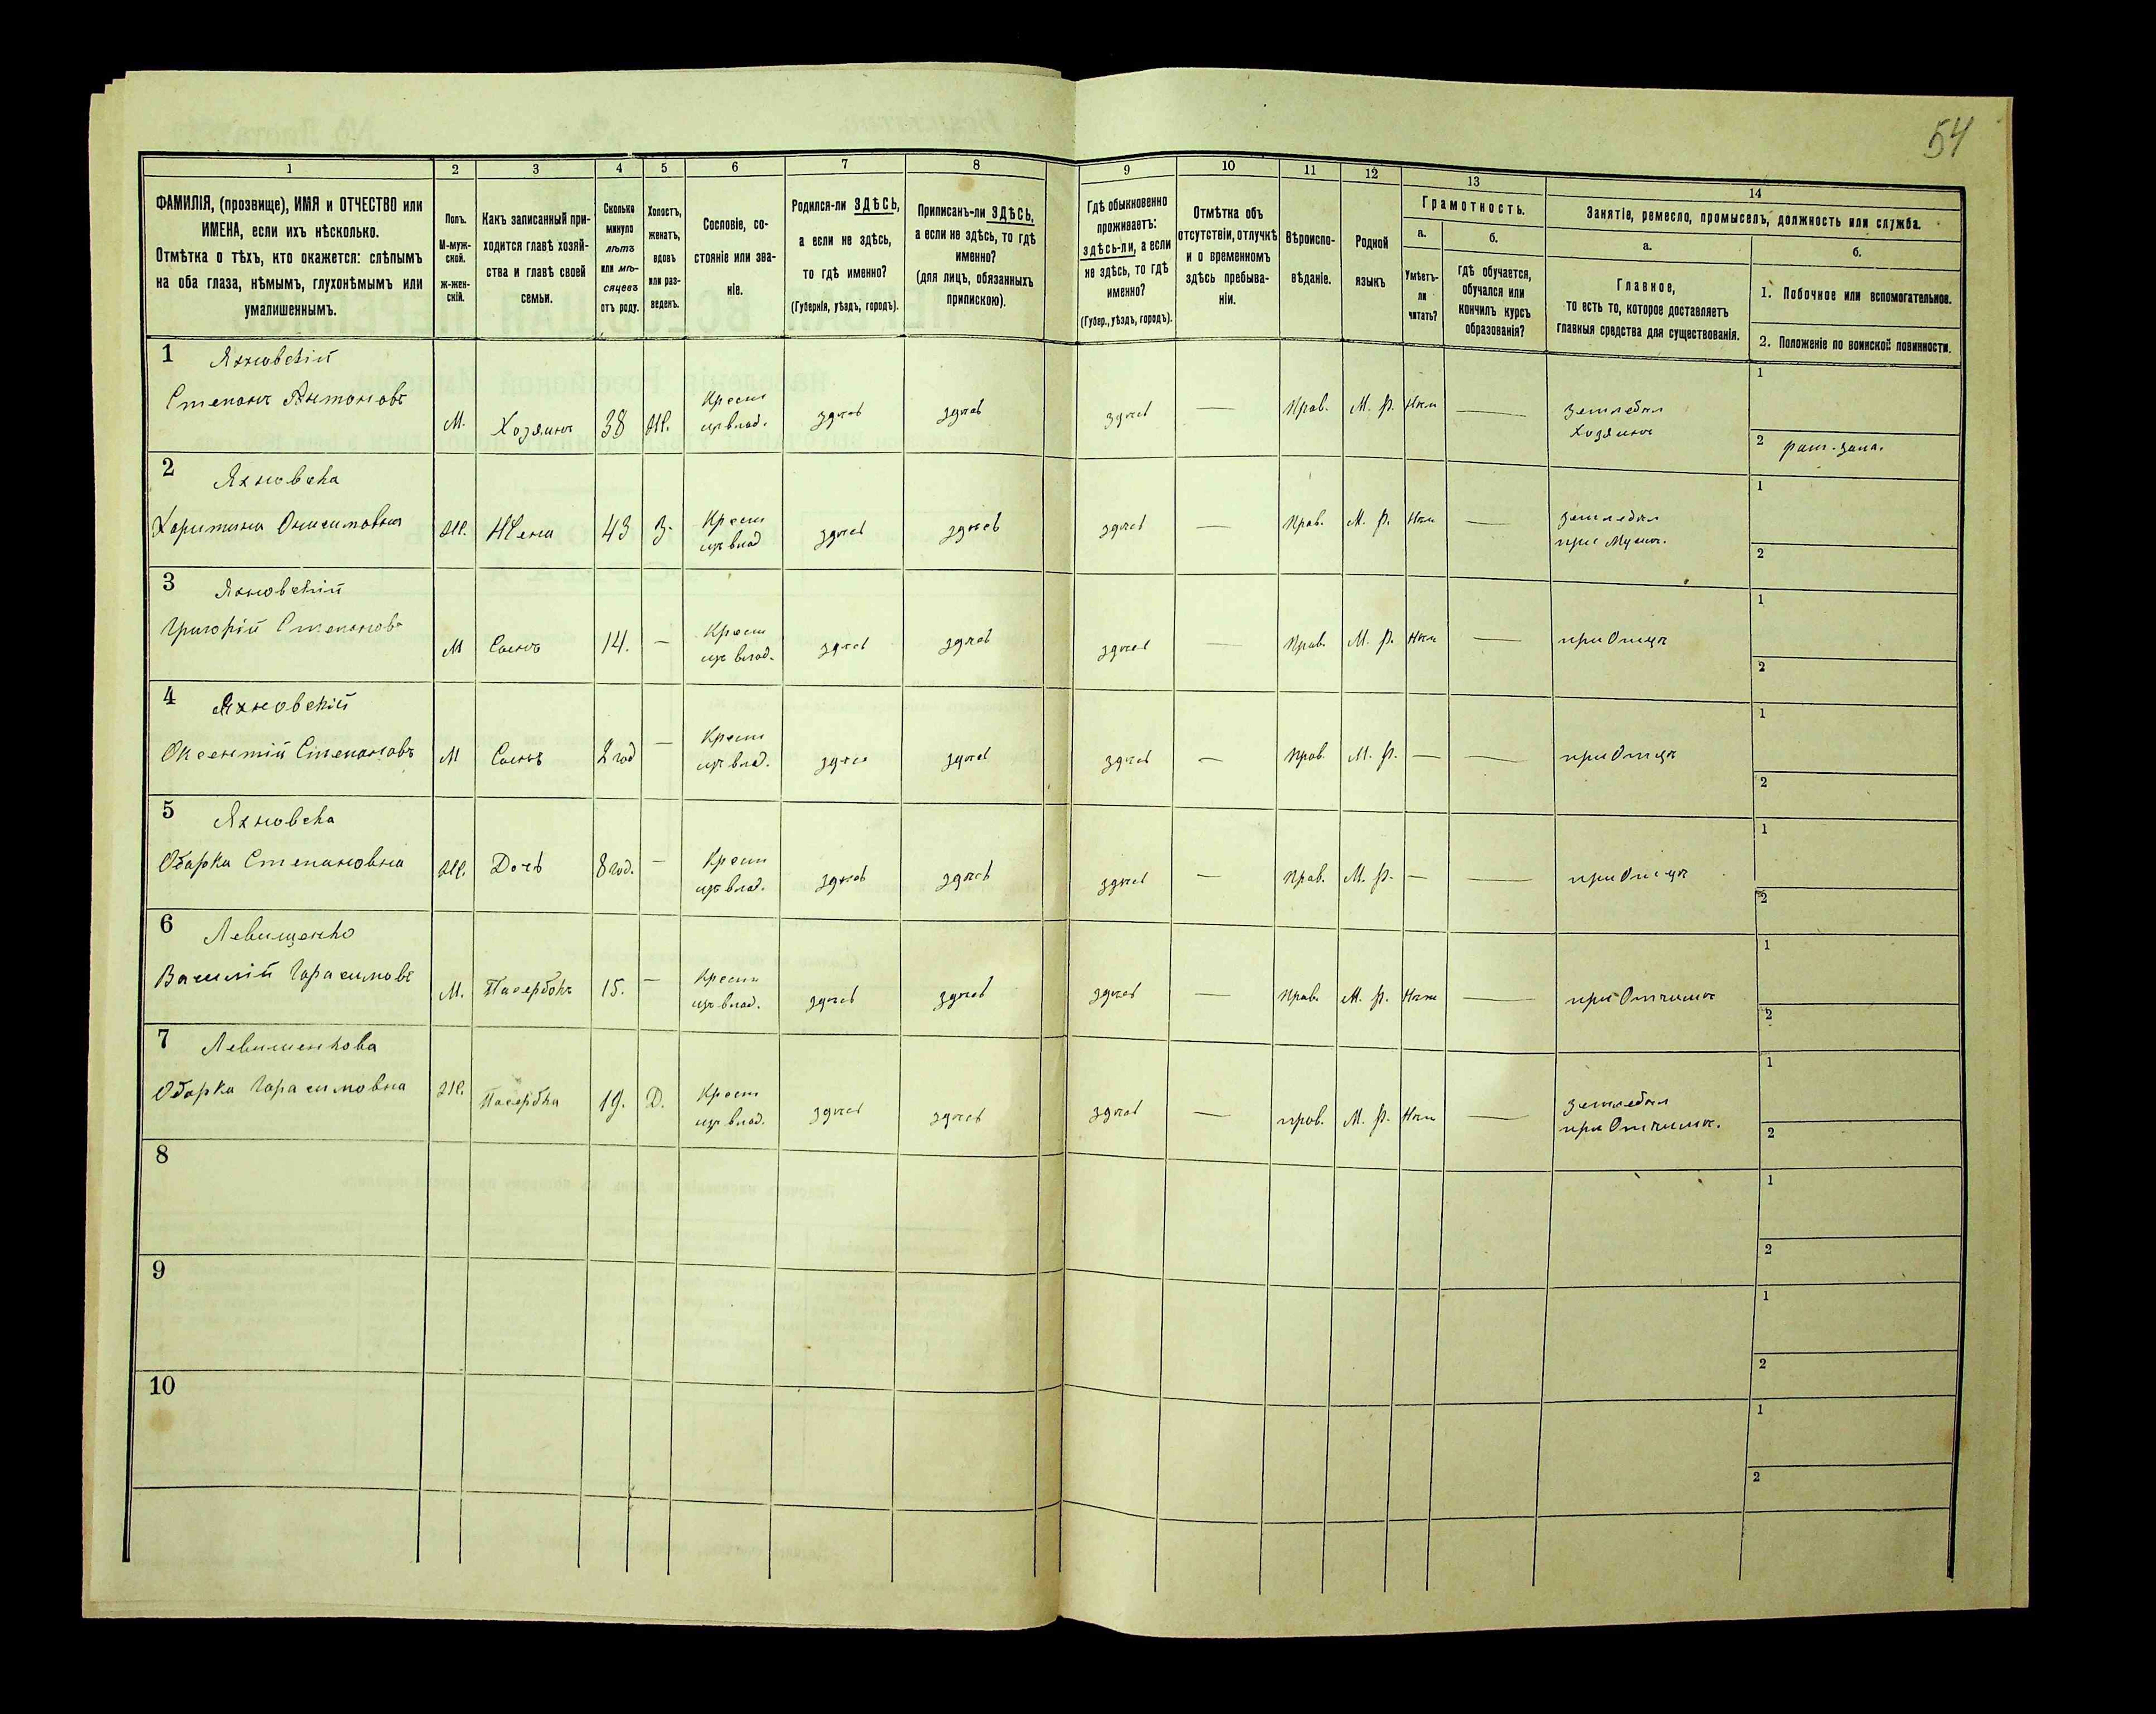 54
1 2 3 4 5 6 7 8 9 10 11 12 13 14
ФАМИЛІЯ, (прозвище), ИМЯ и ОТЧЕСТВО или
ИМЕНА, если ихъ нѣсколько.
Отмѣтка о тѣхъ, кто окажется: слѣпымъ
на оба глаза, нѣмымъ, глухонѣмымъ или
умалишеннымъ.
Полъ.
М-муж-
ской.
ж-жен-
скій.
Какъ записанный при-
ходится главѣ хозяй-
ства и главѣ своей
семьи.
Сколько
минуло
лѣтъ
или мѣ-
сяцевъ
отъ роду.
Холостъ,
женатъ,
вдовъ
или раз-
веденъ.
Сословіе, со-
стояніе или зва-
ніе.
Родился-ли ЗДѢСЬ,
а если не здѣсь,
то гдѣ именно?
(Губернія, уѣздъ, городъ).
Приписанъ-ли ЗДѢСЬ,
а если не здѣсь, то гдѣ
именно?
(для лицъ, обязанныхъ
припискою).
Гдѣ обыкновенно
проживаетъ:
здѣсь-ли, а если
не здѣсь, то гдѣ
именно?
(Губер., уѣздъ, городъ).
Отмѣтка объ
отсутствіи, отлучкѣ
и о временномъ
здѣсь пребыва-
ніи.
Вѣроиспо-
вѣданіе.
Родной
языкъ
Грамотность.
а.
Умѣетъ-
ли
читать?
б.
гдѣ обучается,
обучался или
кончилъ курсъ
образованія?
Занятіе, ремесло, промыселъ, должность или служба.
а.
Главное,
то есть то, которое доставляетъ
главныя средства для существованія.
б.
1. Побочное или вспомогательное.
2. Положеніе по воинской повинности.
1 Яхновскій
Степанъ Антоновъ М. Хозяинъ 38 Ж. Крест
изъ влад. здѣсь здѣсь здѣсь — Прав. М. Р. Нѣт — земледѣл
Хозяинъ
1
2 рат. запа.
2 Яхновска
Харитина Онисимовна Ж. Жена 43 З. Крест
изъ влад здѣсь здѣсь здѣсь — Прав. М. Р. Нѣт — земледѣл
при Мужѣ.
1
2
3 Яхновскій
Григорій Степановъ М Сынъ 14. — Крест
изъ влад. здѣсь здѣсь здѣсь — Прав. М. Р. Нѣт — при Отцѣ
1
2
4 Яхновскій
Оксентій Степановъ М Сынъ 2 год — Крест
изъ влад. здѣсь здѣсь здѣсь — Прав. М. Р. — — при Отцѣ
1
2
5 Яхновска
Одарка Степановна Ж. Дочь 8 год. — Крест
изъ влад. здѣсь здѣсь здѣсь — Прав. М. Р. — — при Отцѣ
1
2
6 Левищенко
Василій Гарасимовъ М. Пасербокъ 15. — Крест
изъ влад. здѣсь здѣсь здѣсь — Прав. М. Р. Нѣт — при Отчимѣ
1
2
7 Левишенкова
Одарка Гарасимовна Ж. Пасербка 19. Д. Крест
изъ влад. здѣсь здѣсь здѣсь — прав. М. Р. Нѣт — земледѣл
при Отчимѣ.
1
2
8
1
2
9
1
2
10
1
2